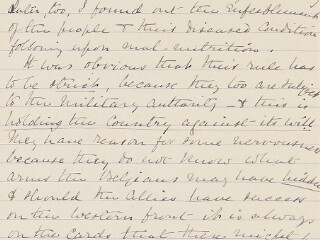 too, I found out the Enfeeblement
of the people & their diseased condition
following upon mal-nutrition.
It was obvious that their rule has
to be strict, because they too are subject
to the Military authority - & this is
holding the Country against its will
They have reason for some nervousness
because they do not know what
arms the Belgians may have hidden
& should the Allies have success
on the Western front it is always
on the Cards that there might